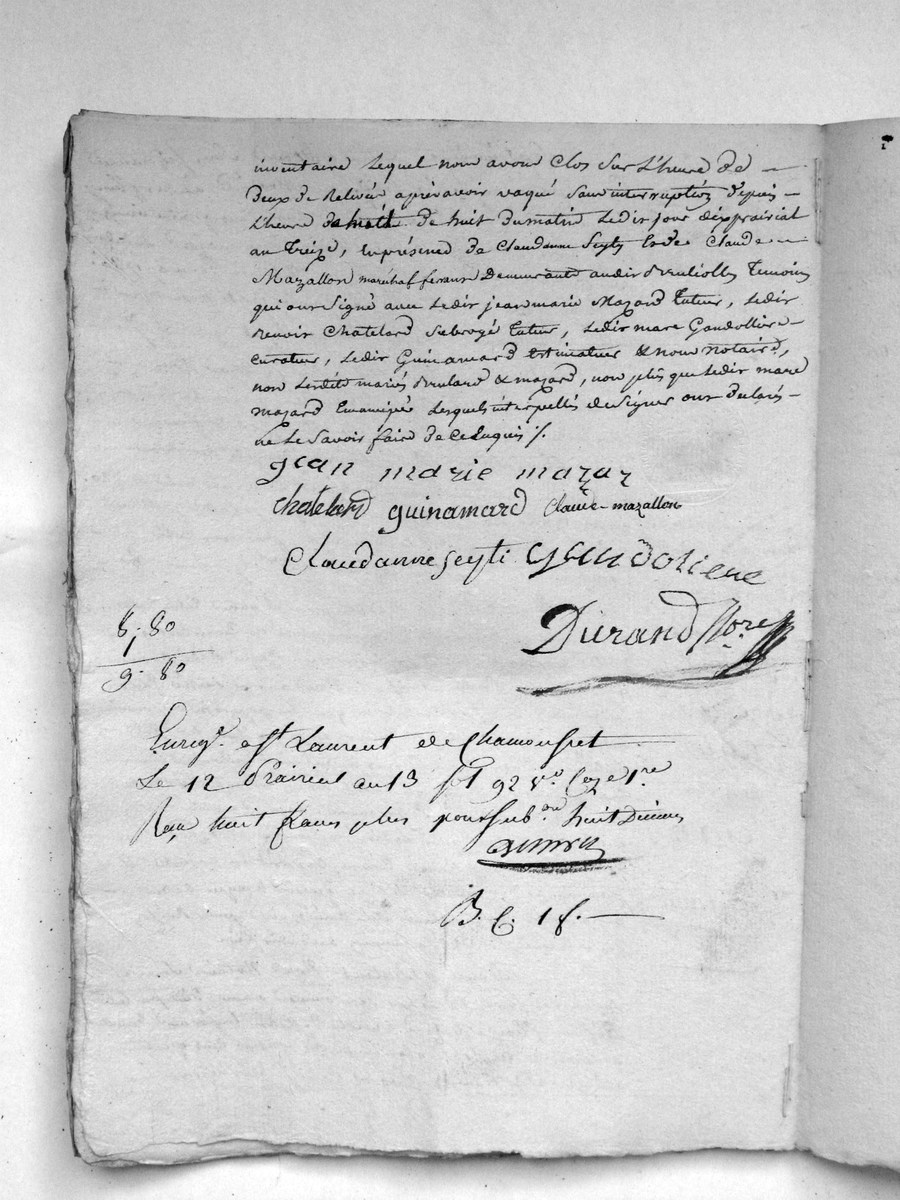 inventaire lequel nous avons Clos sur L'heure de
deux de Relevée après avoir vaqué sans interruption depuis
L'heure de huit du matin Ledit jour dix prairial
an Treize, en présence de Claudanne Seyty & de Claude
Mazallon maréchal ferrant demeurants audit Témoins
qui ont Signé avec Ledit jean marie Mazard Tuteur, Ledit
benoit Chatelard Subrogé Tuteur, Ledit marc Gandollière
curateur, Ledit Guinamard estimateur & nous notaire,
non Lesdits mariés & mazard, non plus que Ledit marc
mazard Emancipé Lesquels interpellés de Signer ont déclaré
ne Le Savoir faire de ce Enquis ./.
jean marie mazar
chatelard guinamard claude mazallon
Claudanne seyti gandoliere
Durand Nore
8, 80
1
9. 80
Enregt. a St Laurent de Chamousset
Le 12 Prairial an 13 fol 92 vo. Caze 1re
Reçu huit francs plus pour Subon huit Décimes
B. C. 18.